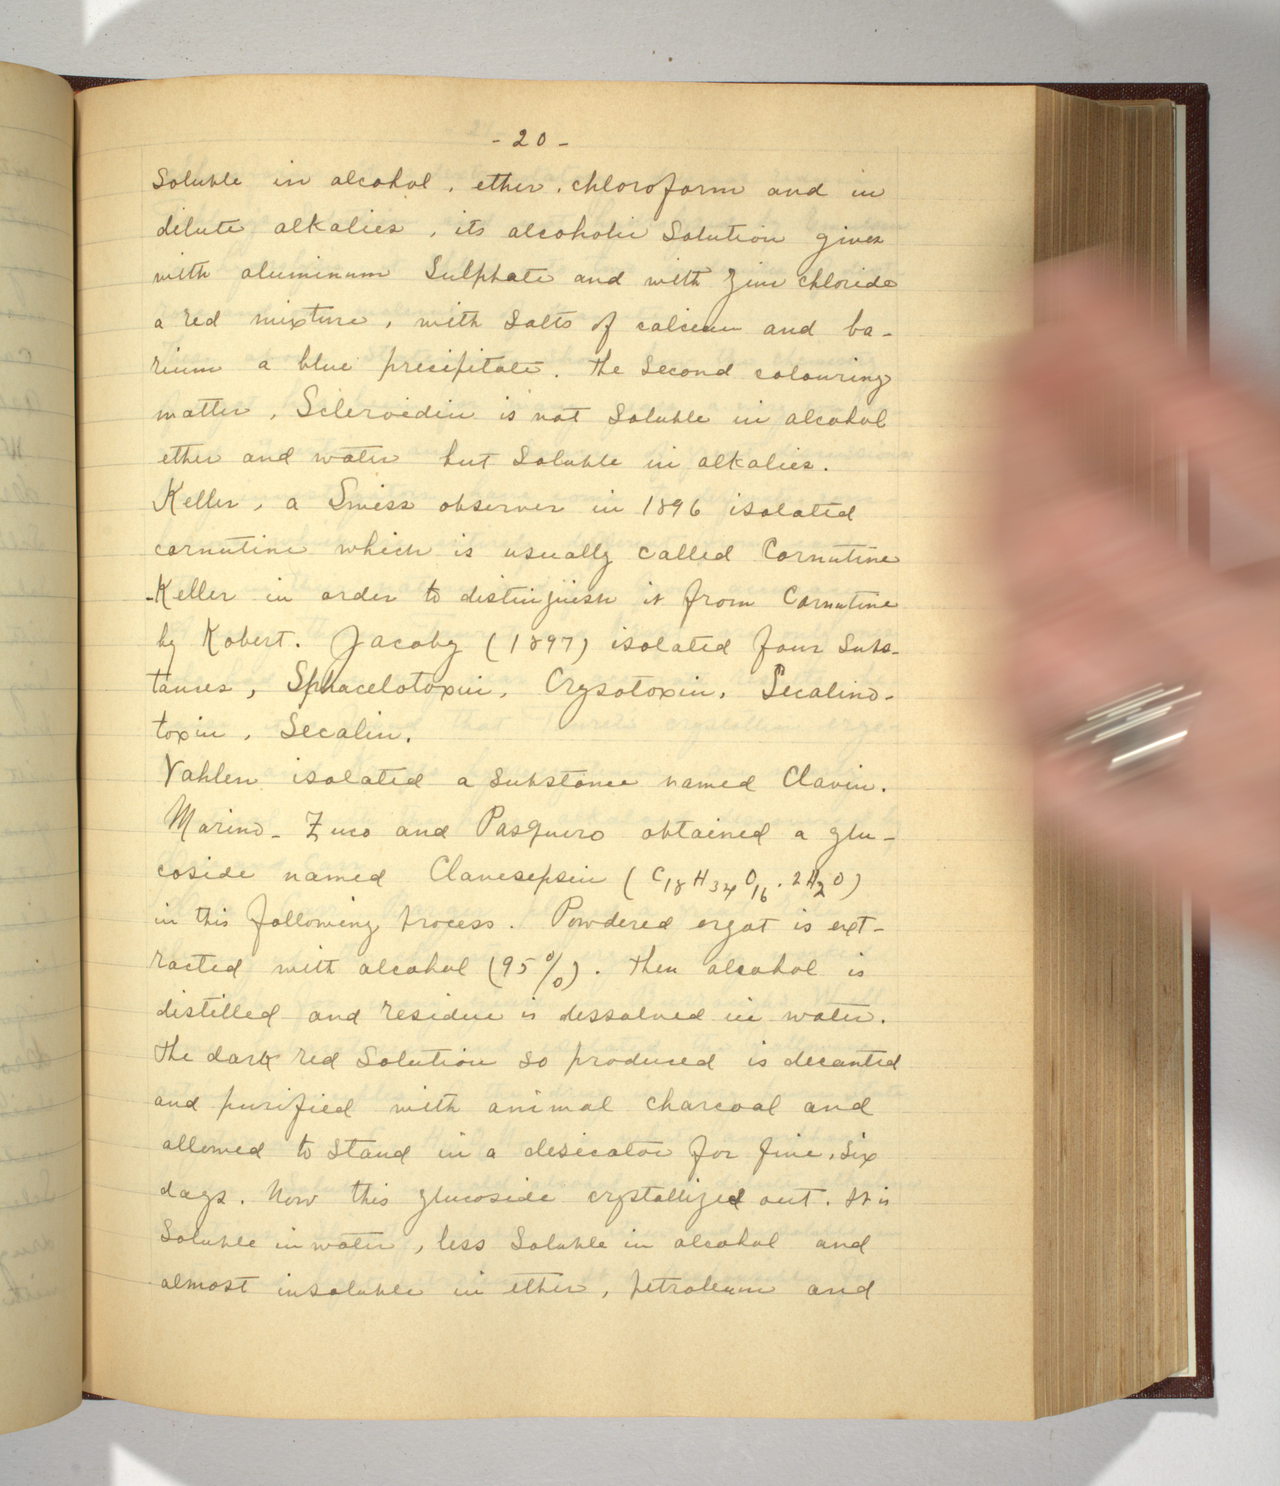 - 20 -
Soluble in alcohol, ether, chloroform and in
dilute alkalies, its alcoholic Solution gives
with aluminum Sulphate and with Zinc chloride
a red mixture, with Salts of calcium and ba-
rium a blue precipitate. The Second colouring
matter, Scleroidin is not Soluble in alcohol
ether and water but Soluble in alkalies.
Keller, a Swiss observer in 1896 isolated
cornutine which is usually called Cornutine
-Keller in order to distinguish it from Cornutine
by Kobert. Jacoby (1897) isolated four Subs-
tances, Sphacelotoxin, Crysotoxin, Secalino-
toxin, Secalin.
Vahlen isolated a Substance named Clavin.
Marino-Zuco and Pasquero obtained a glu-
coside named Clavesepsin (C18H34O16.2H2O)
in this following process. Powdered ergot is ext-
racted with alcohol (95%). Then alcohol is
distilled and residue is dessolved in water.
The dark red Solution so produced is decanted
and purified with animal charcoal and
allowed to Stand in a desicator for five, Six
days. Now this glucoside crystallized out. It is
Soluble in water, less Soluble in alcohol and
almost insoluble in ether, petroleum and